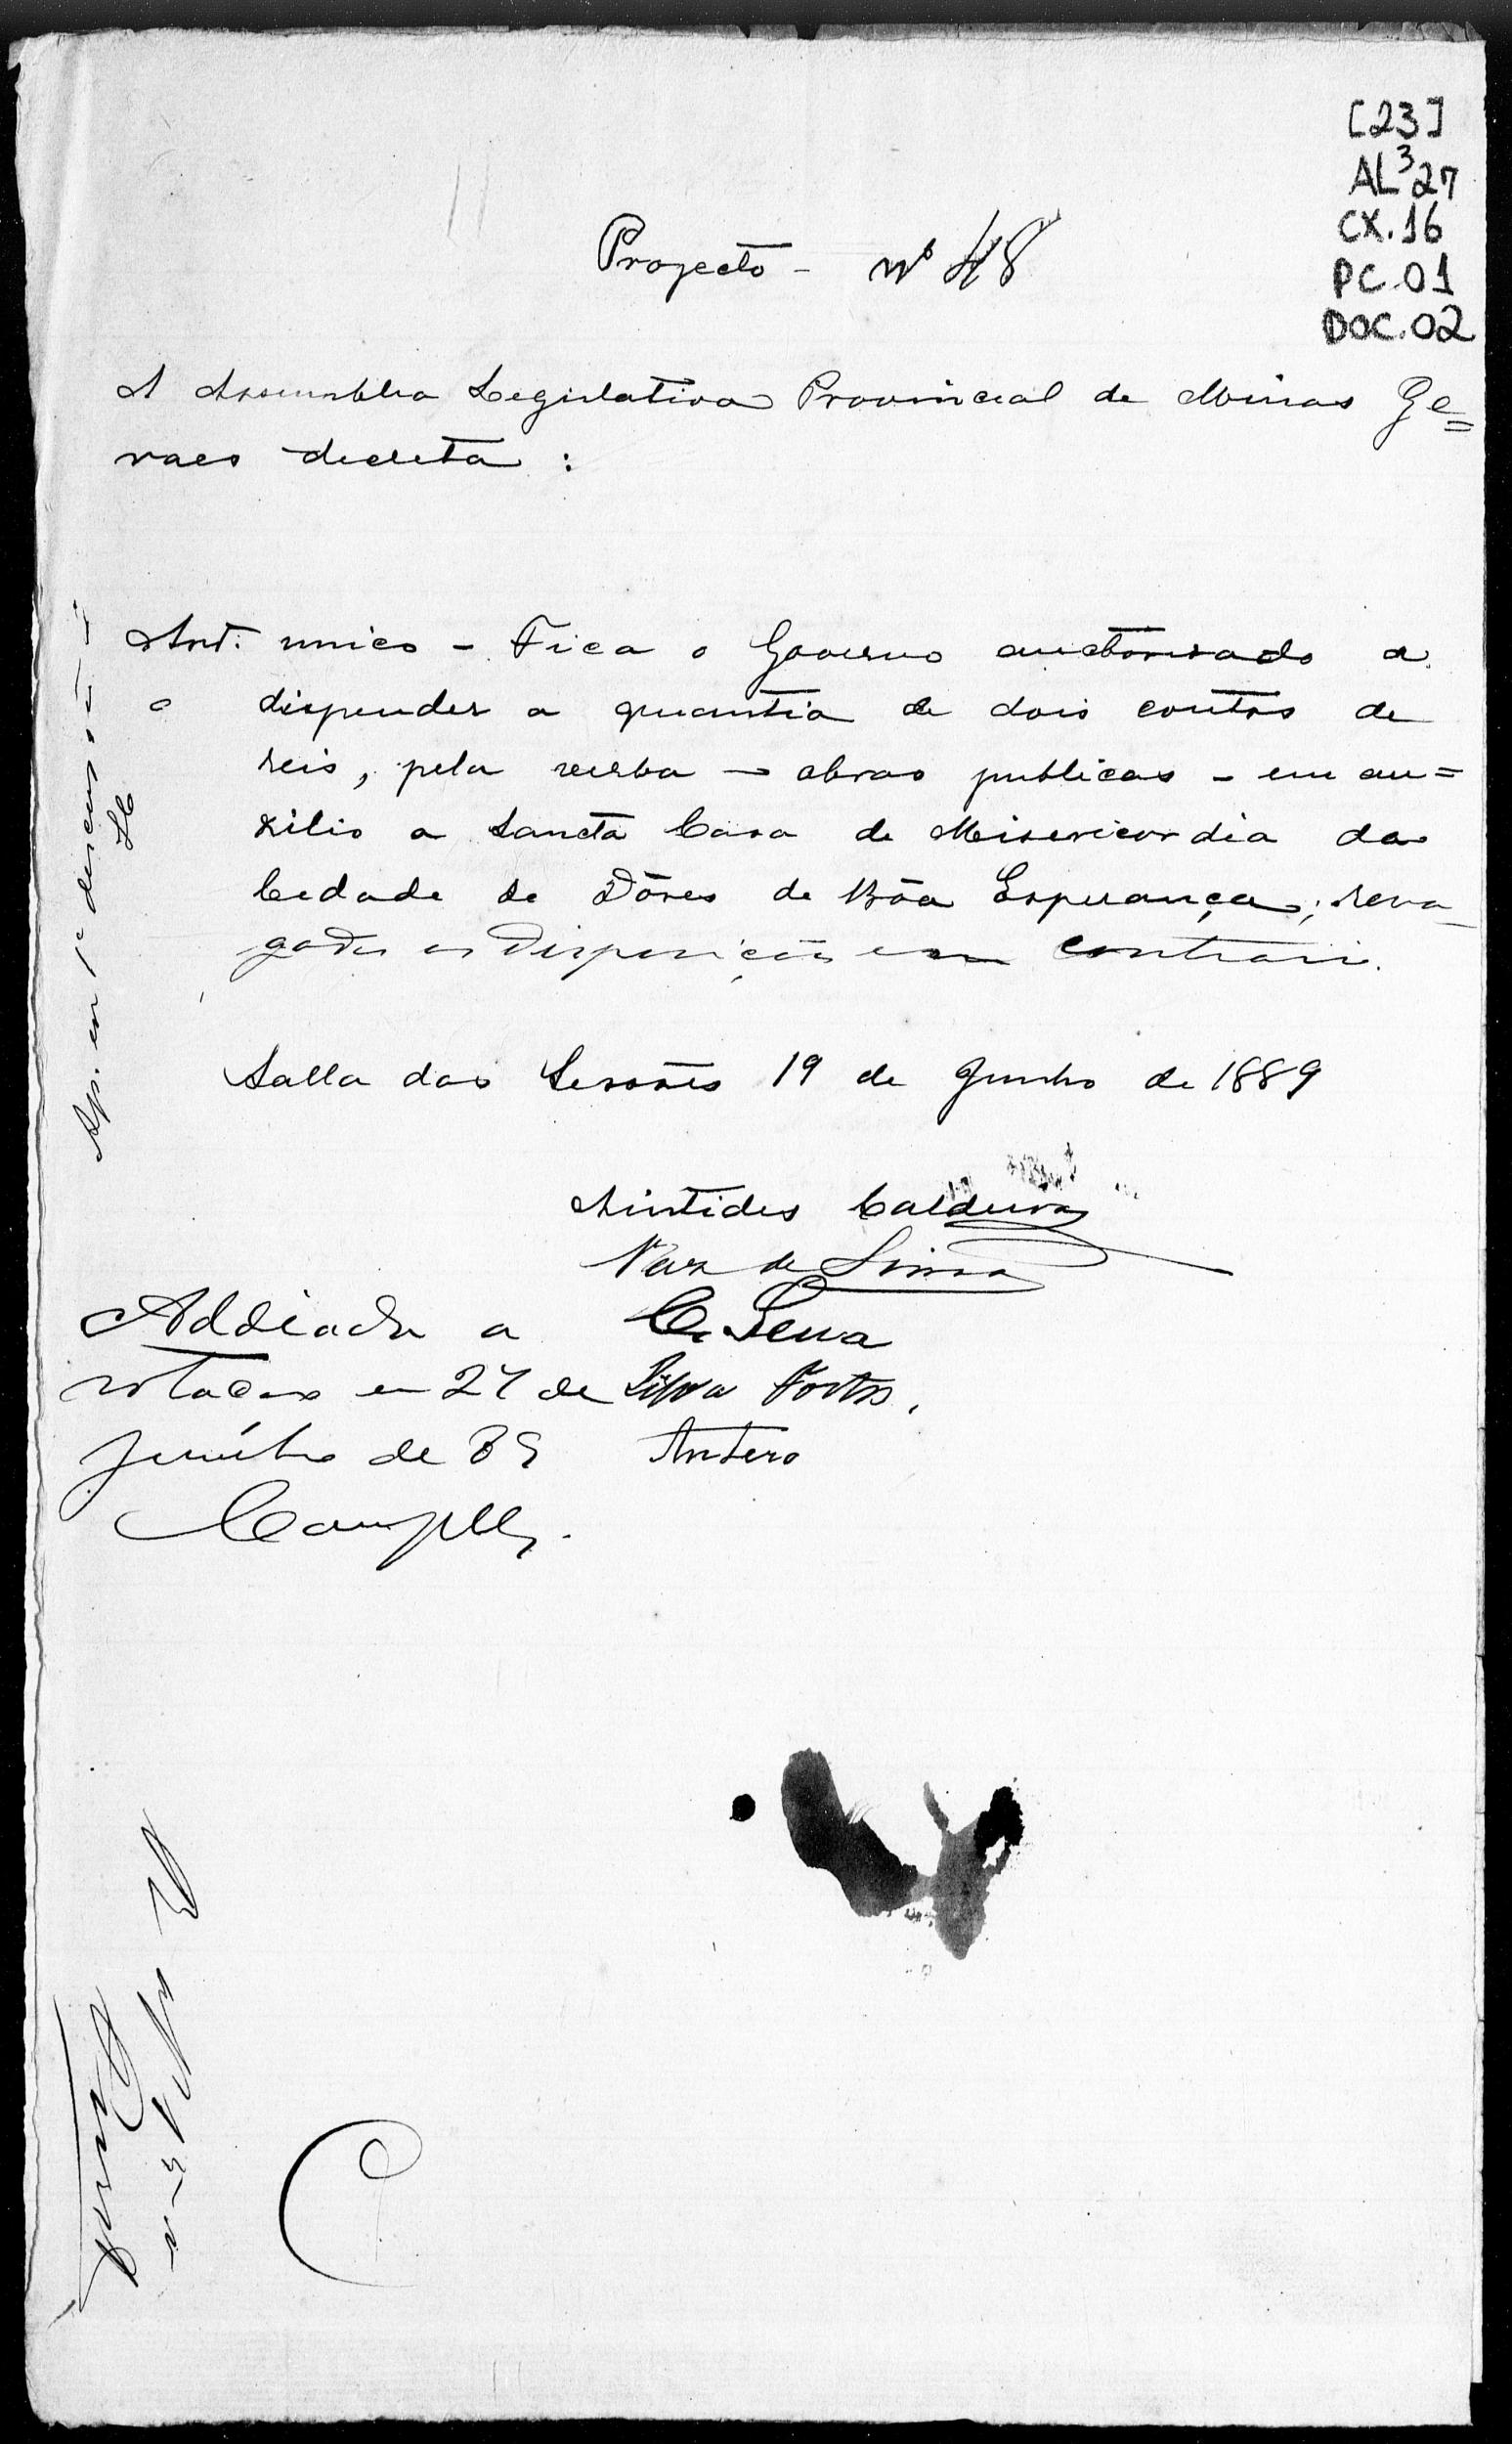 [23]
AL³27
CX.16
PC.01
DOC.02
Projecto - nº 48
A Assemblea Legislativa Provincial de Minas Ge=
raes decreta :
Art. unico - Fica o Governo auctorisado a
dispender a quantia de dois contos de
reis, pela verba - obras publicas - em au=
xilio a Sancta Casa de Misericordia da
Cidade de Dôres de Bôa Esperança; revo-
gadas as disposições em contrario.
Salla das Sessões 19 de Junho de 1889
Aristides Caldeira
Vaz de Lima
C. Senna
Silva Fortes.
Antero
Addiada a
votação em 27 de
junho de 89
Ap. em 1ª discussão